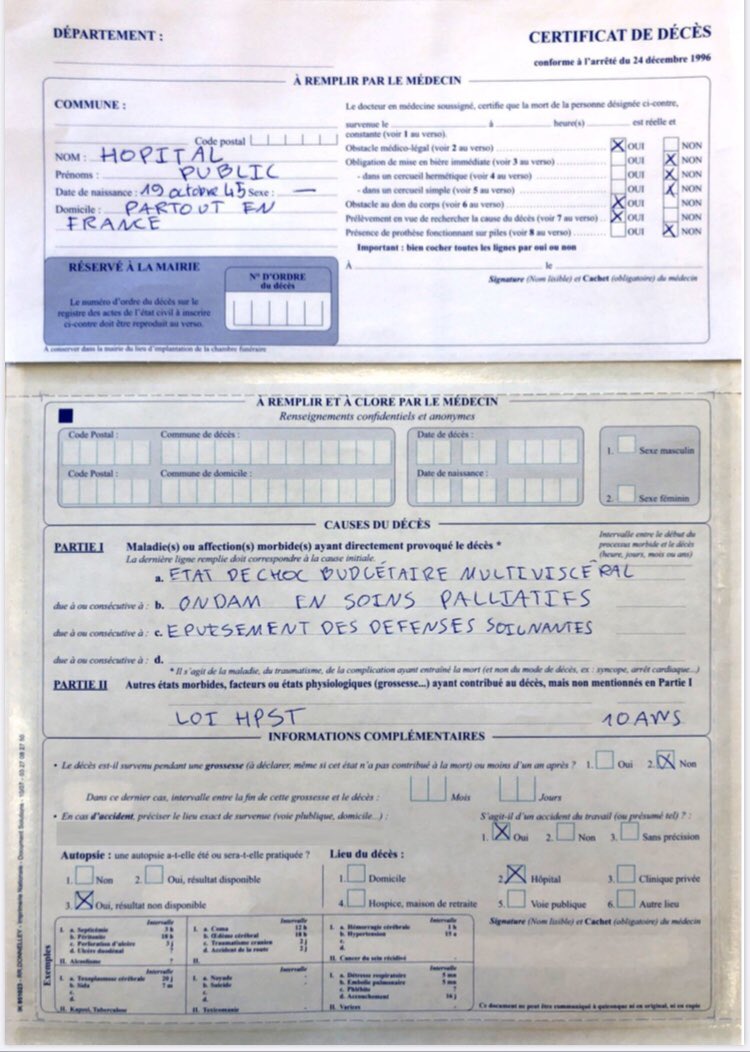 DÉPARTEMENT :
CERTIFICAT DE DÉCÈS
conforme à l'arrêté du 24 décembre 1996
À REMPLIR PAR LE MÉDECIN
COMMUNE :
Code postal
NOM : HOPITAL
Prénoms : PUBLIC
Date de naissance : 19 octobre 45 Sexe : —
Domicile : PARTOUT EN
FRANCE
Le docteur en médecine soussigné, certifie que la mort de la personne désignée ci-contre,
survenue le à heure(s) est réelle et
constante (voir 1 au verso).
Obstacle médico-légal (voir 2 au verso) X OUI NON
Obligation de mise en bière immédiate (voir 3 au verso) OUI X NON
- dans un cercueil hermétique (voir 4 au verso) OUI X NON
- dans un cercueil simple (voir 5 au verso) OUI X NON
Obstacle au don du corps (voir 6 au verso) X OUI NON
Prélèvement en vue de rechercher la cause du décès (voir 7 au verso) X OUI NON
Présence de prothèse fonctionnant sur piles (voir 8 au verso) OUI X NON
Important : bien cocher toutes les lignes par oui ou non
À le
Signature (Nom lisible) et Cachet (obligatoire) du médecin
RÉSERVÉ À LA MAIRIE
Le numéro d'ordre du décès sur le
registre des actes de l'état civil à inscrire
ci-contre doit être reproduit au verso.
N° D'ORDRE
du décès
A conserver dans la mairie du lieu d'implantation de la chambre funéraire
À REMPLIR ET À CLORE PAR LE MÉDECIN
Renseignements confidentiels et anonymes
Code Postal : Commune de décès : Date de décès :
1. Sexe masculin
Code Postal : Commune de domicile : Date de naissance :
2. Sexe féminin
CAUSES DU DÉCÈS
PARTIE I Maladie(s) ou affection(s) morbide(s) ayant directement provoqué le décès *
La dernière ligne remplie doit correspondre à la cause initiale.
Intervalle entre le début du
processus morbide et le décès
(heure, jours, mois ou ans)
a. ETAT DE CHOC BUDGÉTAIRE MULTIVISCÉRAL
due à ou consécutive à : b. ONDAM EN SOINS PALLIATIFS
due à ou consécutive à : c. EPUISEMENT DES DEFENSES SOIGNANTES
due à ou consécutive à : d.
* Il s'agit de la maladie, du traumatisme, de la complication ayant entraîné la mort (et non du mode de décès, ex : syncope, arrêt cardiaque...)
PARTIE II Autres états morbides, facteurs ou états physiologiques (grossesse...) ayant contribué au décès, mais non mentionnés en Partie I
LOI HPST 10 ANS
INFORMATIONS COMPLÉMENTAIRES
• Le décès est-il survenu pendant une grossesse (à déclarer, même si cet état n'a pas contribué à la mort) ou moins d'un an après ? 1. Oui 2. X Non
Dans ce dernier cas, intervalle entre la fin de cette grossesse et le décès : Mois Jours
• En cas d'accident, préciser le lieu exact de survenue (voie publique, domicile...) :
S'agit-il d'un accident du travail (ou présumé tel) ? :
1. X Oui 2. Non 3. Sans précision
Autopsie : une autopsie a-t-elle été ou sera-t-elle pratiquée ?
1. Non 2. Oui, résultat disponible
3. X Oui, résultat non disponible
Lieu du décès :
1. Domicile 2. X Hôpital 3. Clinique privée
4. Hospice, maison de retraite 5. Voie publique 6. Autre lieu
Signature (Nom lisible) et Cachet (obligatoire) du médecin
Exemples
Intervalle
I. a. Septicémie 3 h
b. Péritonite 18 h
c. Perforation d'ulcère 3 j
d. Ulcère duodénal ?
II. Alcoolisme ?
Intervalle
I. a. Coma 12 h
b. Œdème cérébral 18 h
c. Traumatisme cranien 2 j
d. Accident de la route 2 j
II.
Intervalle
I. a. Hémorragie cérébrale 1 h
b. Hypertension 15 a
c.
d.
II. Cancer du sein récidivé
Intervalle
I. a. Toxoplasmose cérébrale 20 j
b. Sida 7 m
c.
d.
II. Kaposi, Tuberculose
Intervalle
I. a. Noyade
b. Suicide
c.
d.
II. Toxicomanie
Intervalle
I. a. Détresse respiratoire 5 mn
b. Embolie pulmonaire 5 mn
c. Phlébite ?
d. Accouchement 16 j
II. Varices
Ce document ne peut être communiqué à quiconque ni en original, ni en copie